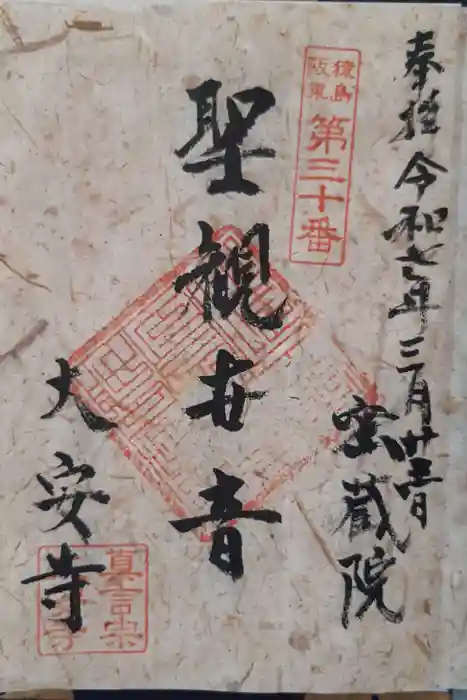 奉拝 令和七年三月廿三日
宝蔵院
猿島
阪東
第三十番
聖観世音
大安寺
真言宗